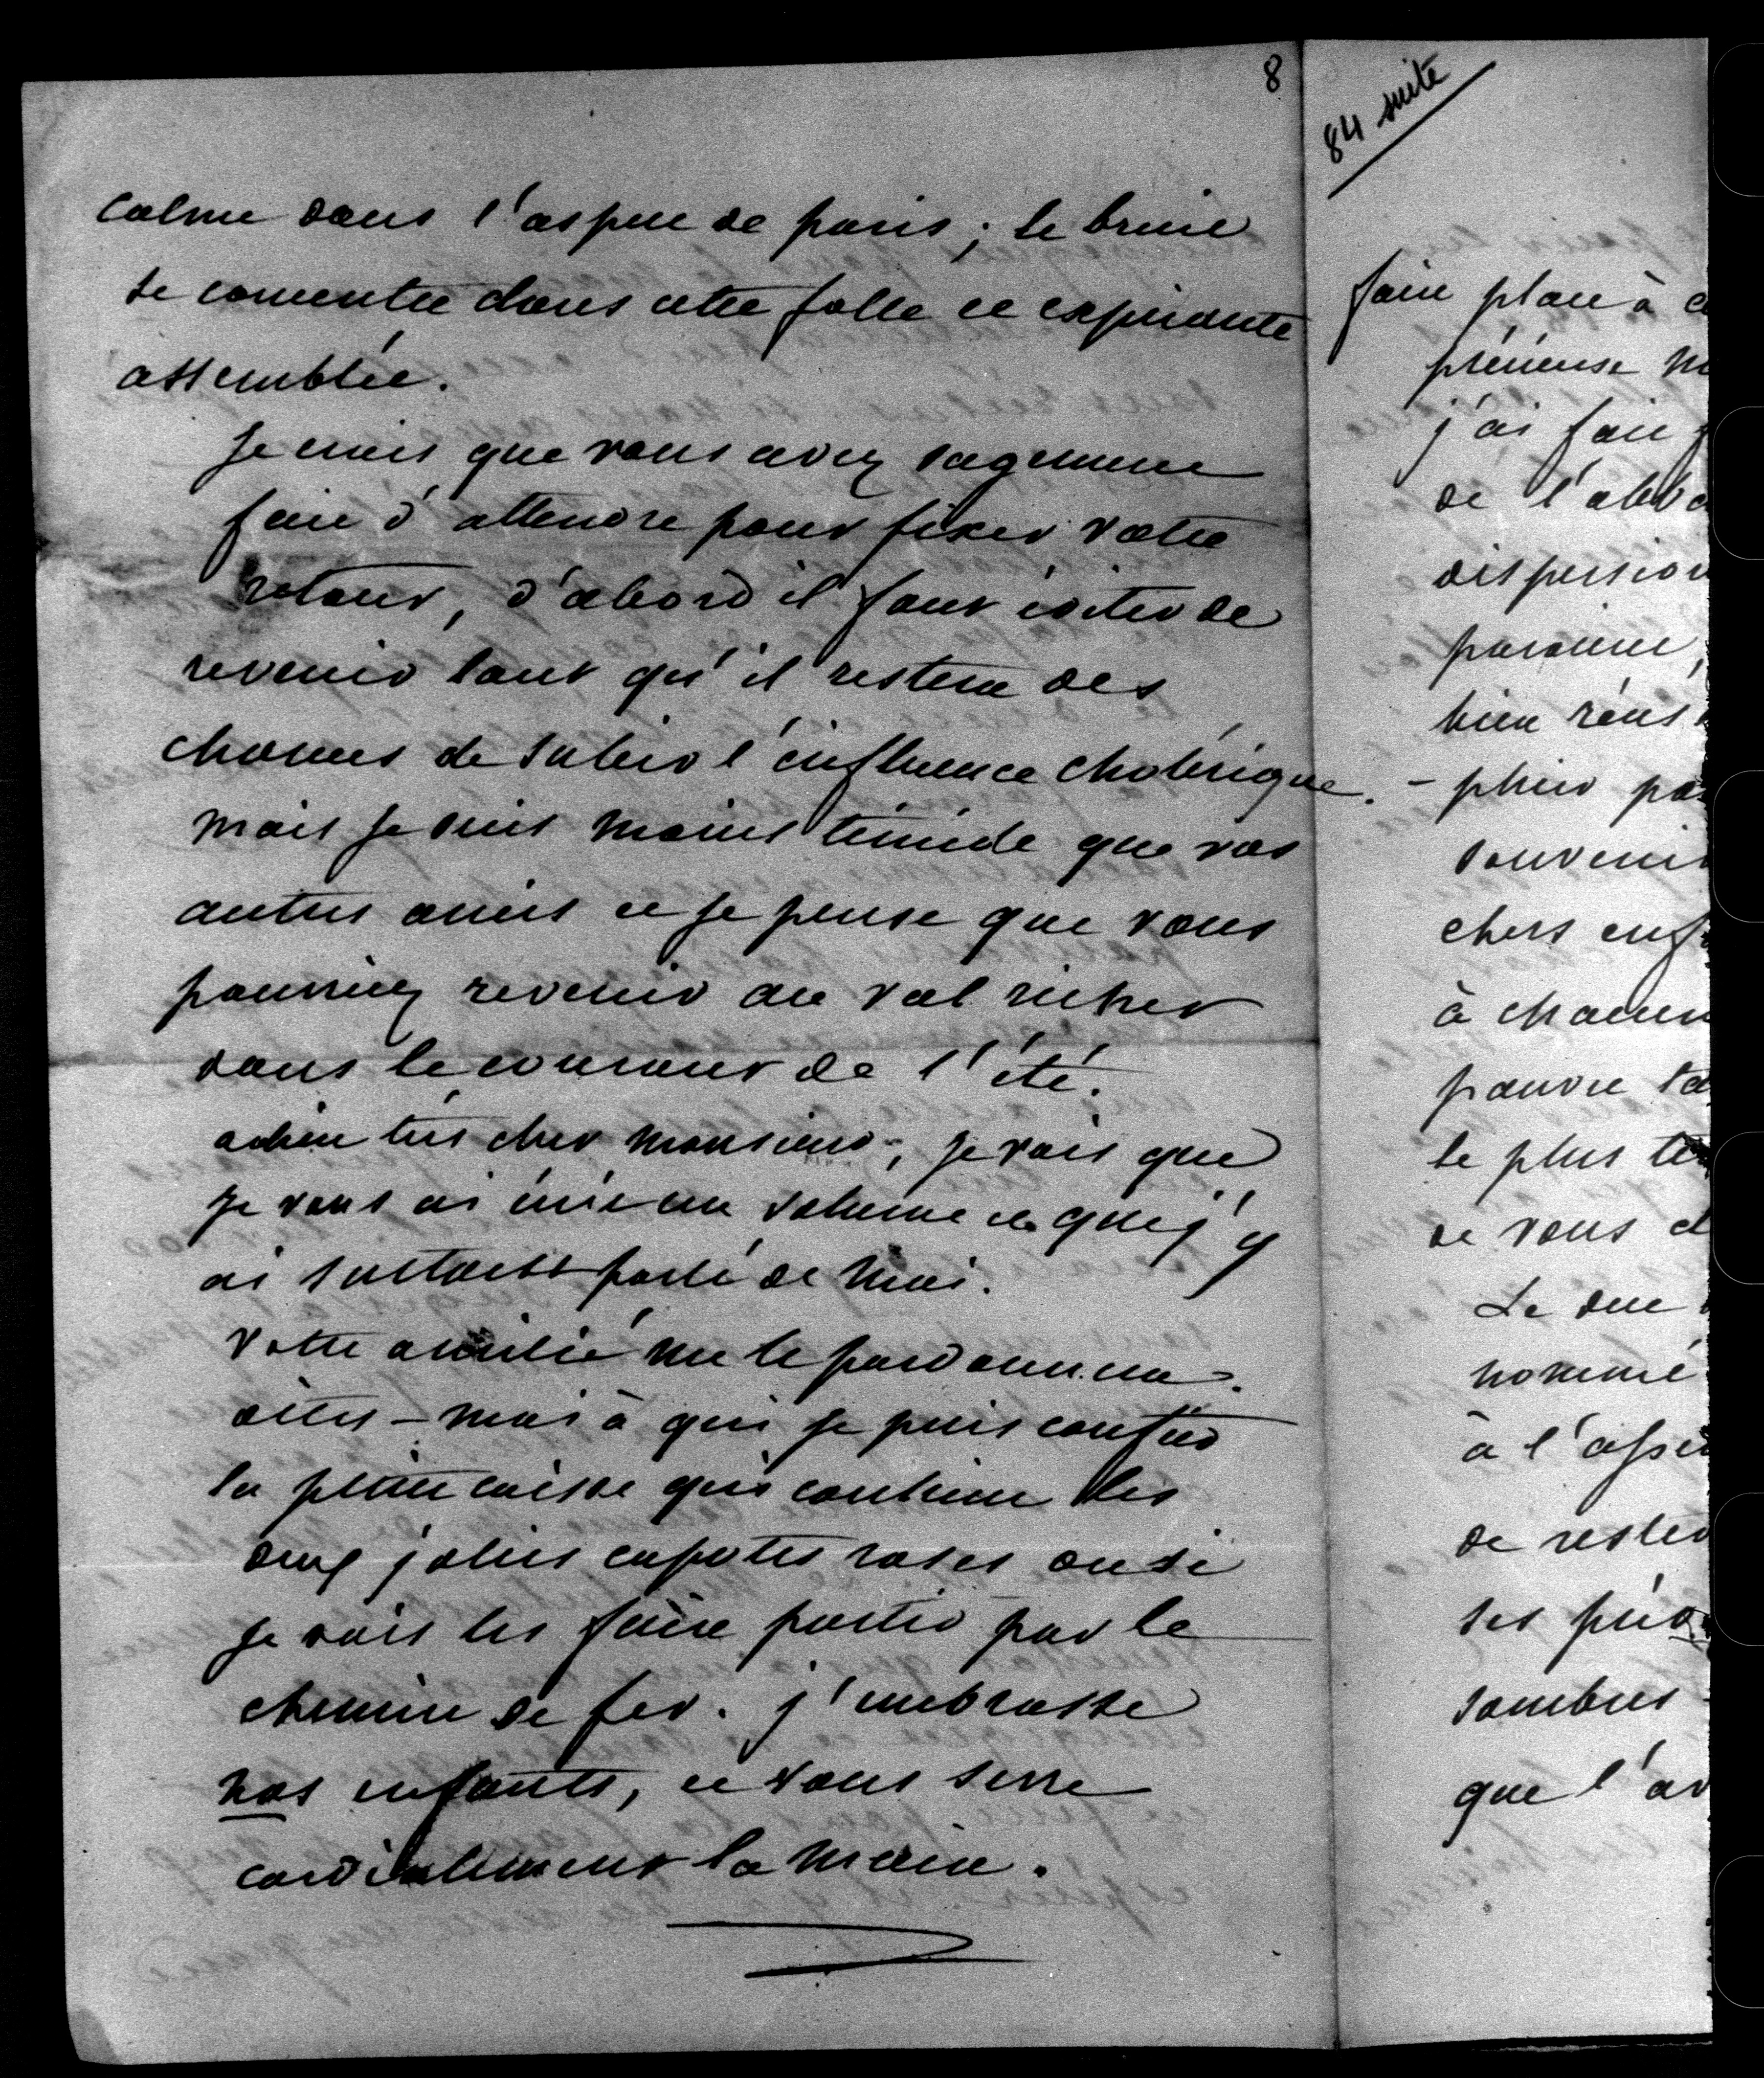 8
calme dans l'aspect de paris ; le bruit
se concentre dans cette folle et expirante
assemblée.
Je crois que vous avez sagement
fait d'attendre pour fixer votre
retour, d'abord il faut éviter de
revenir tant qu'il restera des
chances de subir l'influence cholérique.
mais je suis moins timide que vos
autres amis et je pense que vous
pourriez revenir au val richer
dans le courant de l'été.
adieu très cher monsieur ; je vois que
je vous ai écrit un volume et que j'y
ai surtout parlé de moi.
Votre amitié me le pardonnera.
dites-moi à qui je puis confier
la petite caisse qui contient les
deux jolies capotes roses ou si
je vais les faire partir par le
chemin de fer. j'embrasse
nos enfants, et vous serre
cordialement la main.
84 suite
faire place à
précieuse
j'ai fait
de l'
dispersion
bien
pas
souvenir
chers
à chacun
pauvre
le plus
de vous
Le duc
nommé
à l'
de rester
ses
sombres
que l'